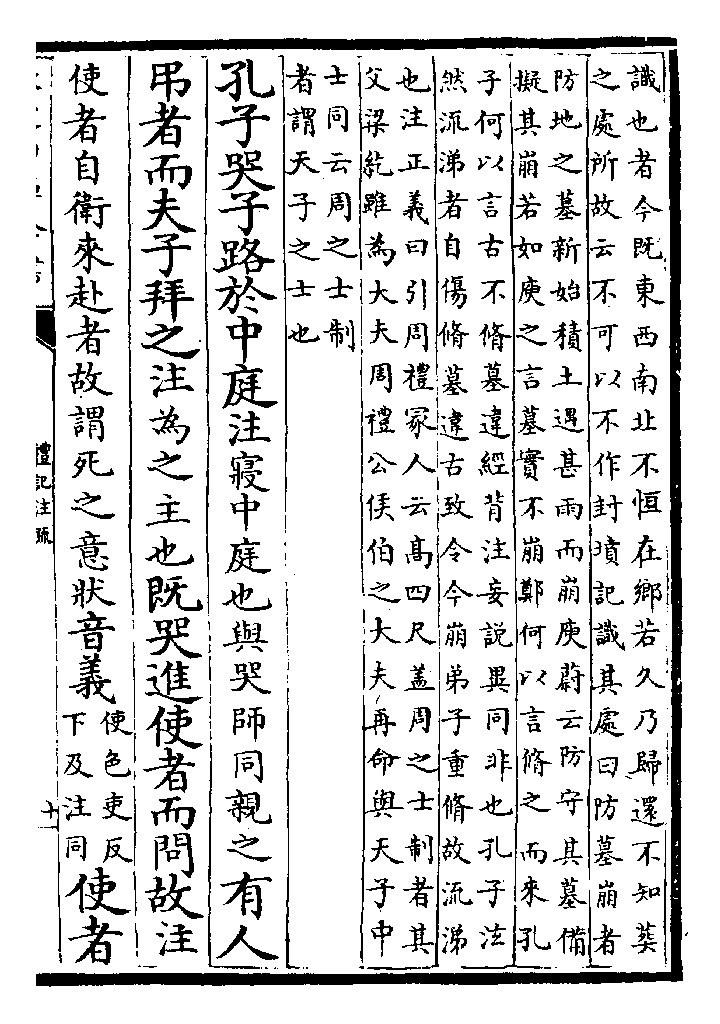 識也者今既東西南北不恒在鄉若久乃歸還不知葬
之處所故云不可以不作封墳記識其處曰防墓崩者
防地之墓新始積土遇甚雨而崩庾蔚云防守其墓備
擬其崩若如庾之言墓實不崩鄭何以言脩之而來孔
子何以言古不脩墓違經背注妄說異同非也孔子泫
然流涕者自傷脩墓違古致令今崩弟子重脩故流涕
也注正義曰引周禮冢人云高四尺蓋周之士制者其
父梁紇雖為大夫周禮公侯伯之大夫再命與天子中
士同云周之士制
者謂天子之士也
孔子哭子路於中庭注寢中庭也與哭師同親之有人
弔者而夫子拜之注為之主也既哭進使者而問故注
使者自衛來赴者故謂死之意狀音義
使色吏反
下及注同
使者
禮記注疏
十一